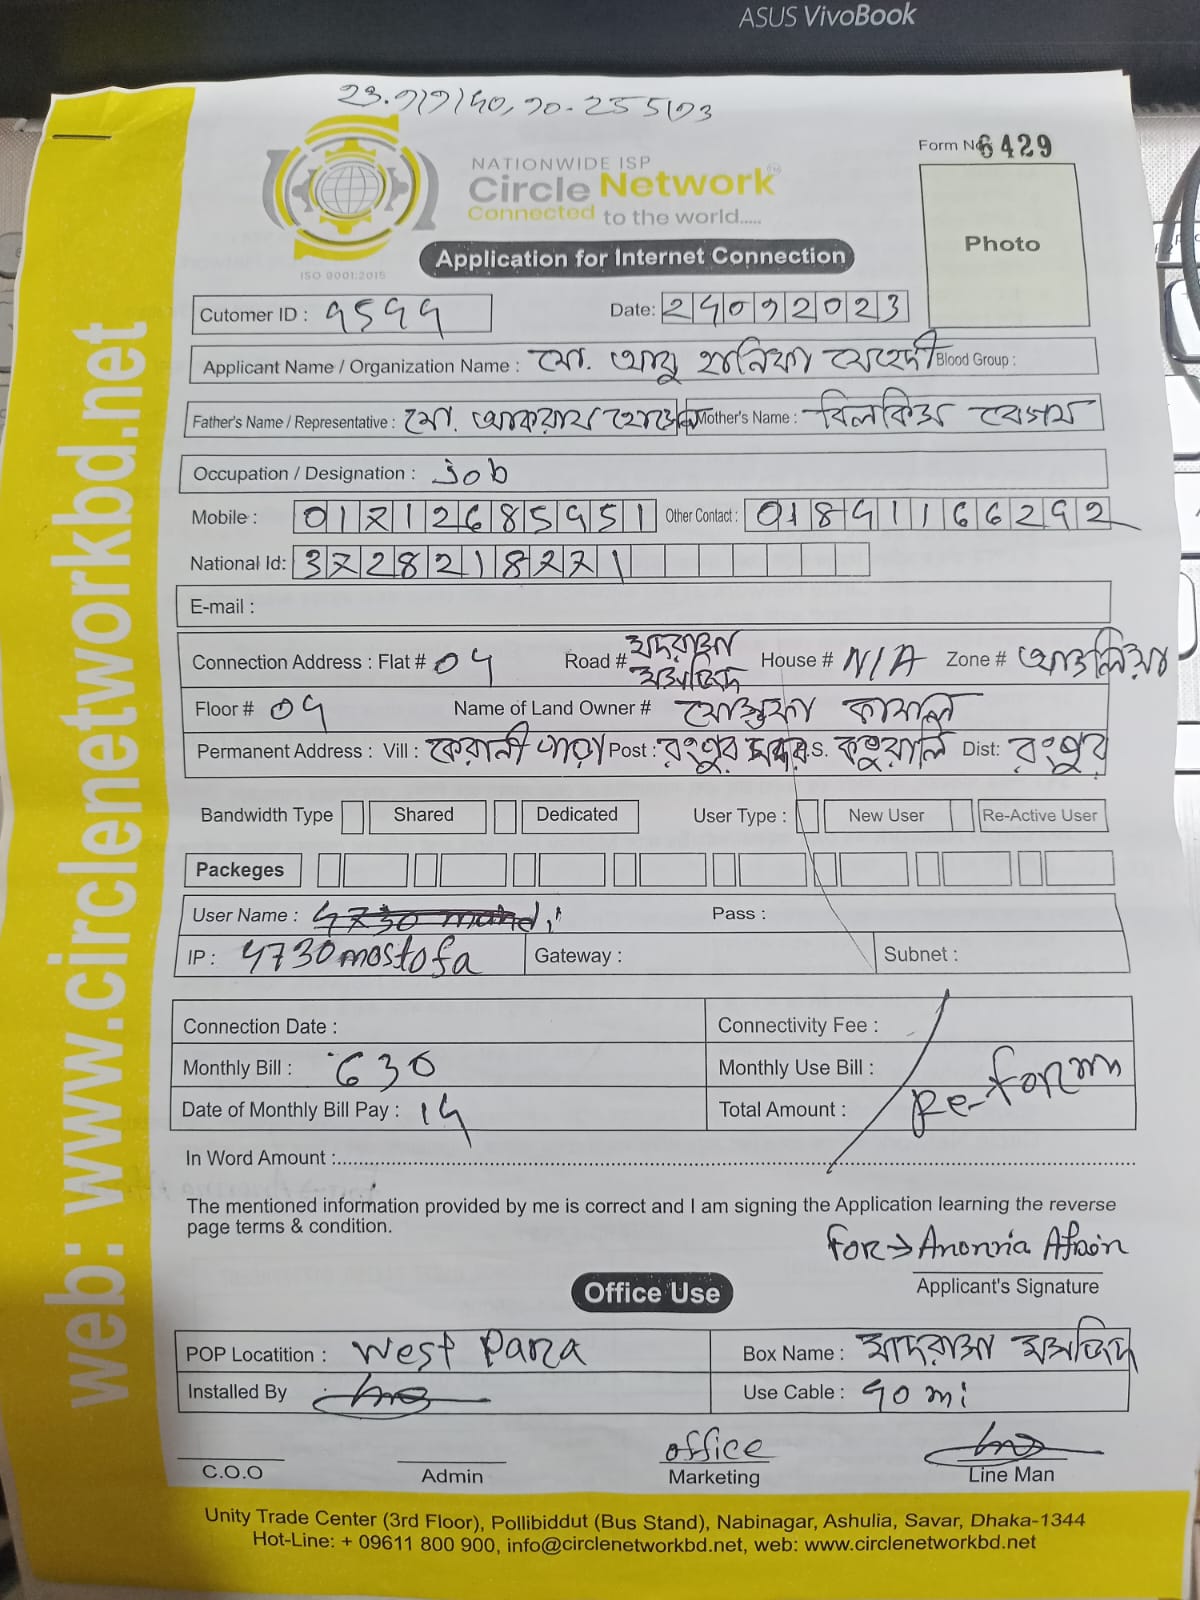 ASUS VivoBook
NATIONWIDE ISP
Circle Network
Connected to the world.....
ISO 9001:2015
Form No 6429
Photo
Application for Internet Connection
Cutomer ID :
Date:
Applicant Name / Organization Name : মো. আবু হানিফা মেহেদী Blood Group :
Father's Name / Representative : মো. আকরাম হোসেন Mother's Name : বিলকিস বেগম
Occupation / Designation : job
Mobile : Other Contact :
National Id:
E-mail :
Connection Address : Flat # 04 Road # মাদরাসা মসজিদ House # N/A Zone # আউলিয়া
Floor # 04 Name of Land Owner # মোস্তফা কামাল
Permanent Address : Vill : কেরানী পাড়া Post : রংপুর সদর P.S. Dist: রংপুর
Bandwidth Type Shared Dedicated User Type : New User Re-Active User
Packeges
User Name : Pass :
IP : 4730mostofa Gateway : Subnet :
Connection Date : Connectivity Fee :
Monthly Bill : 630 Monthly Use Bill :
Date of Monthly Bill Pay : 14 Total Amount :
Re-form
In Word Amount :
The mentioned information provided by me is correct and I am signing the Application learning the reverse
page terms & condition.
For→
Applicant's Signature
Office Use
POP Locatition : West Para Box Name : মাদরাসা মসজিদ
Installed By Use Cable : 90 mi
office
C.O.O Admin Marketing Line Man
Unity Trade Center (3rd Floor), Pollibiddut (Bus Stand), Nabinagar, Ashulia, Savar, Dhaka-1344
Hot-Line: + 09611 800 900, info@circlenetworkbd.net, web: www.circlenetworkbd.net
web: www.circlenetworkbd.net